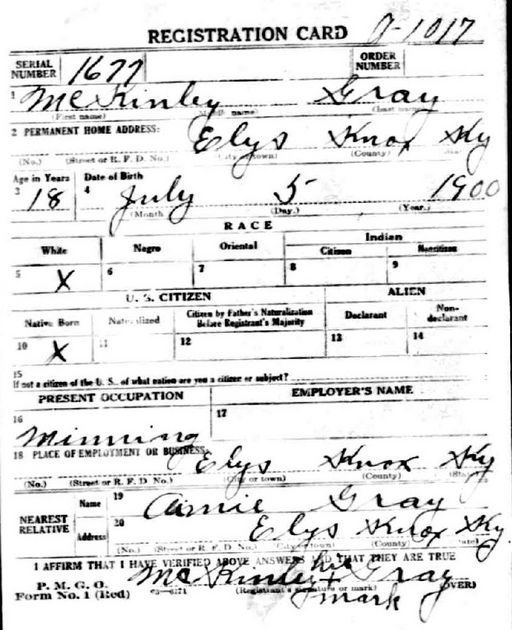 REGISTRATION CARD A-1017
SERIAL NUMBER 1677 ORDER NUMBER
1 McKinley Gray
(First name) (Middle name) (Last name)
2 PERMANENT HOME ADDRESS: Elys Knox Ky
(No.) (Street or R. F. D. No.) (City or town) (County) (State)
Age in Years Date of Birth
3 18 4 July 5 1900
(Month) (Day.) (Year.)
RACE
White Negro Oriental Indian
Citizen Noncitizen
5 X 6 7 8 9
U. S. CITIZEN ALIEN
Native Born Naturalized Citizen by Father's Naturalization Before Registrant's Majority Declarant Non-declarant
10 X 11 12 13 14
15
If not a citizen of the U. S., of what nation are you a citizen or subject?
PRESENT OCCUPATION EMPLOYER'S NAME
16 17
Minning
18 PLACE OF EMPLOYMENT OR BUSINESS: Elys Knox Ky
(No.) (Street or R. F. D. No.) (City or town) (County) (State)
NEAREST RELATIVE Name 19 Amie Gray
Address 20 Elys Knox Ky
(No.) (Street or R. F. D. No.) (City or town) (County) (State)
I AFFIRM THAT I HAVE VERIFIED ABOVE ANSWERS AND THAT THEY ARE TRUE
P. M. G. O. McKinley his + Gray
Form No. 1 (Red) 03—6171 (Registrant's signature or mark) mark (OVER)